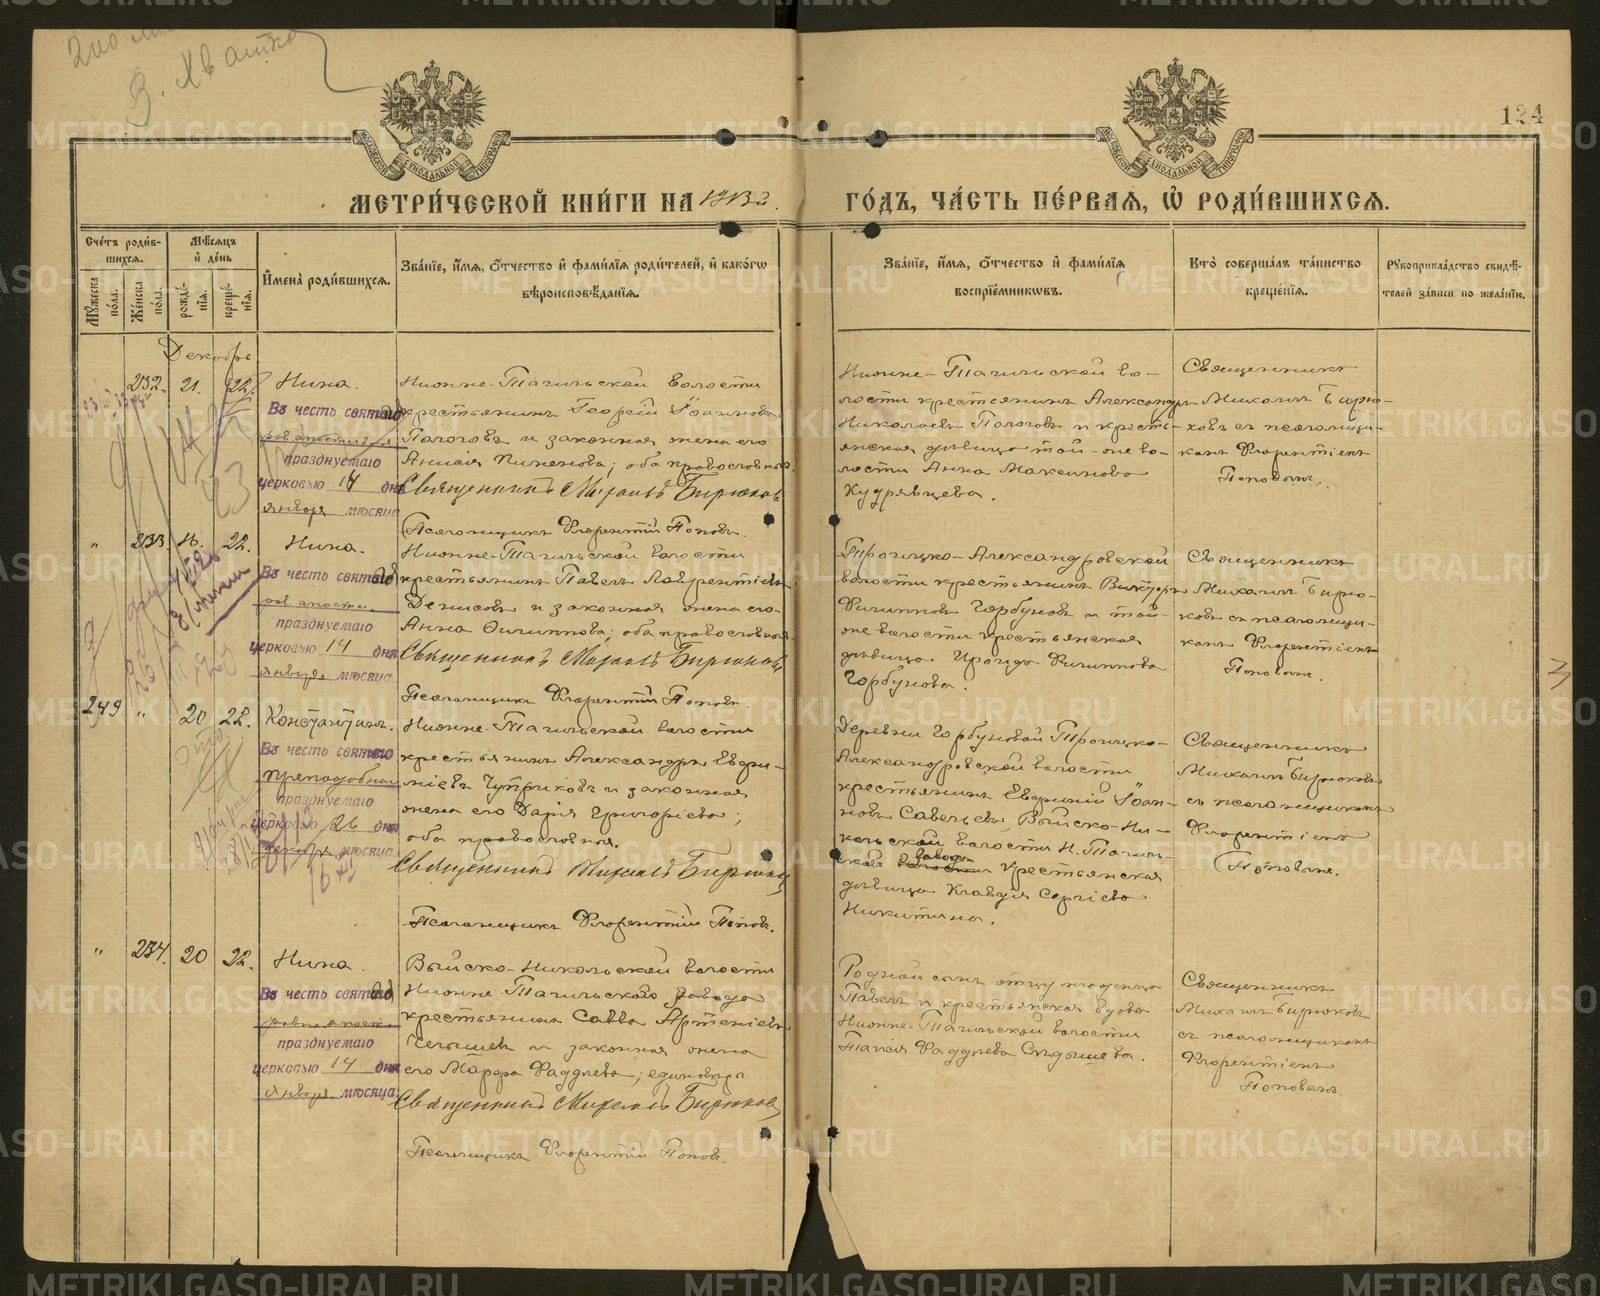 В. Хватко
124
МОСКОВСКОЙ СѴНОДАЛЬНОЙ ТИПОГРАФІИ
МОСКОВСКОЙ СѴНОДАЛЬНОЙ ТИПОГРАФІИ
МЕТРИ́ЧЕСКОЙ КНИ́ГИ НА 1913й.
ГО́ДЪ, ЧА́СТЬ ПЕ́РВАЯ, Ѽ РОДИ́ВШИХСЯ.
Сче́тъ роди́в-
шихся.
Мꙋжеска по́ла.
Же́нска по́ла.
Мѣ́сяцъ
и҆ де́нь
рожде́-
нїя.
креще́-
нїя.
И҆мена̀ роди́вшихся.
Зва́нїе, и҆́мя, ѻ҆́тчество и҆ фами́лїя роди́телей, и҆ како́гѡ
вѣроисповѣ́данїя.
Зва́нїе, и҆́мя, ѻ҆́тчество и҆ фами́лїя
воспрїе́мникѡвъ.
Кто̀ соверша́лъ та́инство
креще́нїя.
Рꙋкоприкла́дство свидѣ́-
телей за́писи по жела́нїю.
Декабрь
232. 21. 22. Нина.
Въ честь святой
равноапостол
празднуемаго
церковью 14 дня
января мѣсяца
Нижне-Тагильской волости
крестьянинъ Георгій Іоанновъ
Пологовъ и законная жена его
Анисія Пименова; оба православные.
Священникъ Михаилъ Бирюковъ
Псаломщикъ Флорентій Поповъ.
Нижне-Тагильской во-
лости крестьянинъ Александръ
Николаевъ Пологовъ и кресть-
янская дѣвица той-же во-
лости Анна Максимова
Кудрявцева.
Священникъ
Михаилъ Бирю-
ковъ съ псаломщи-
комъ Флорентіемъ
Поповымъ.
" 233. 16. 22. Нина.
Въ честь святой
рав апост.
празднуемаго
церковью 14 дня
января мѣсяца
Нижне-Тагильской волости
крестьянинъ Павелъ Лаврентіевъ
Денисовъ и законная жена его
Анна Филиппова; оба православные.
Священникъ Михаилъ Бирюковъ
Псаломщикъ Флорентій Поповъ.
Троицко-Александровской
волости крестьянинъ Викторъ
Филипповъ Горбуновъ и той-
же волости крестьянская
дѣвица Ираида Филиппова
Горбунова.
Священникъ
Михаилъ Бирю-
ковъ съ псаломщи-
комъ Флорентіемъ
Поповымъ.
249 " 20 22. Константинъ.
Въ честь святаго
преподобнаго
празднуемаго
церковью 26 дня
декабря мѣсяца
Нижне-Тагильской волости
крестьянинъ Александръ Евфи-
міевъ Чуприковъ и законная
жена его Дарія Григоріева;
оба православные.
Священникъ Михаилъ Бирюковъ
Псаломщикъ Флорентій Поповъ.
Деревни Горбуновой Троицко-
Александровской волости
крестьянинъ Евфимій Іоан-
новъ Савельевъ, Выйско-Ни-
кольской волости Н. Тагиль-
скаго завода крестьянская
дѣвица Клавдія Сергіева
Никитина.
Священникъ
Михаилъ Бирюковъ
съ псаломщикомъ
Флорентіемъ
Поповымъ.
" 234. 20 22. Нина.
Въ честь святой
равноапосто
празднуемаго
церковью 14 дня
января мѣсяца
Выйско-Никольской волости
Нижне-Тагильскаго завода
крестьянинъ Савва Артеміевъ
и законная жена
его Марфа Фаддеева; единовѣры
Священникъ Михаилъ Бирюковъ
Псаломщикъ Флорентій Поповъ.
Родной сынъ отцу младенца
Павелъ и крестьянская вдова
Нижне-Тагильской волости
Таисія Фаддеева Сѣдышева.
Священникъ
Михаилъ Бирюковъ
съ псаломщикомъ
Флорентіемъ
Поповымъ.
METRIKI.GASO-URAL.RU